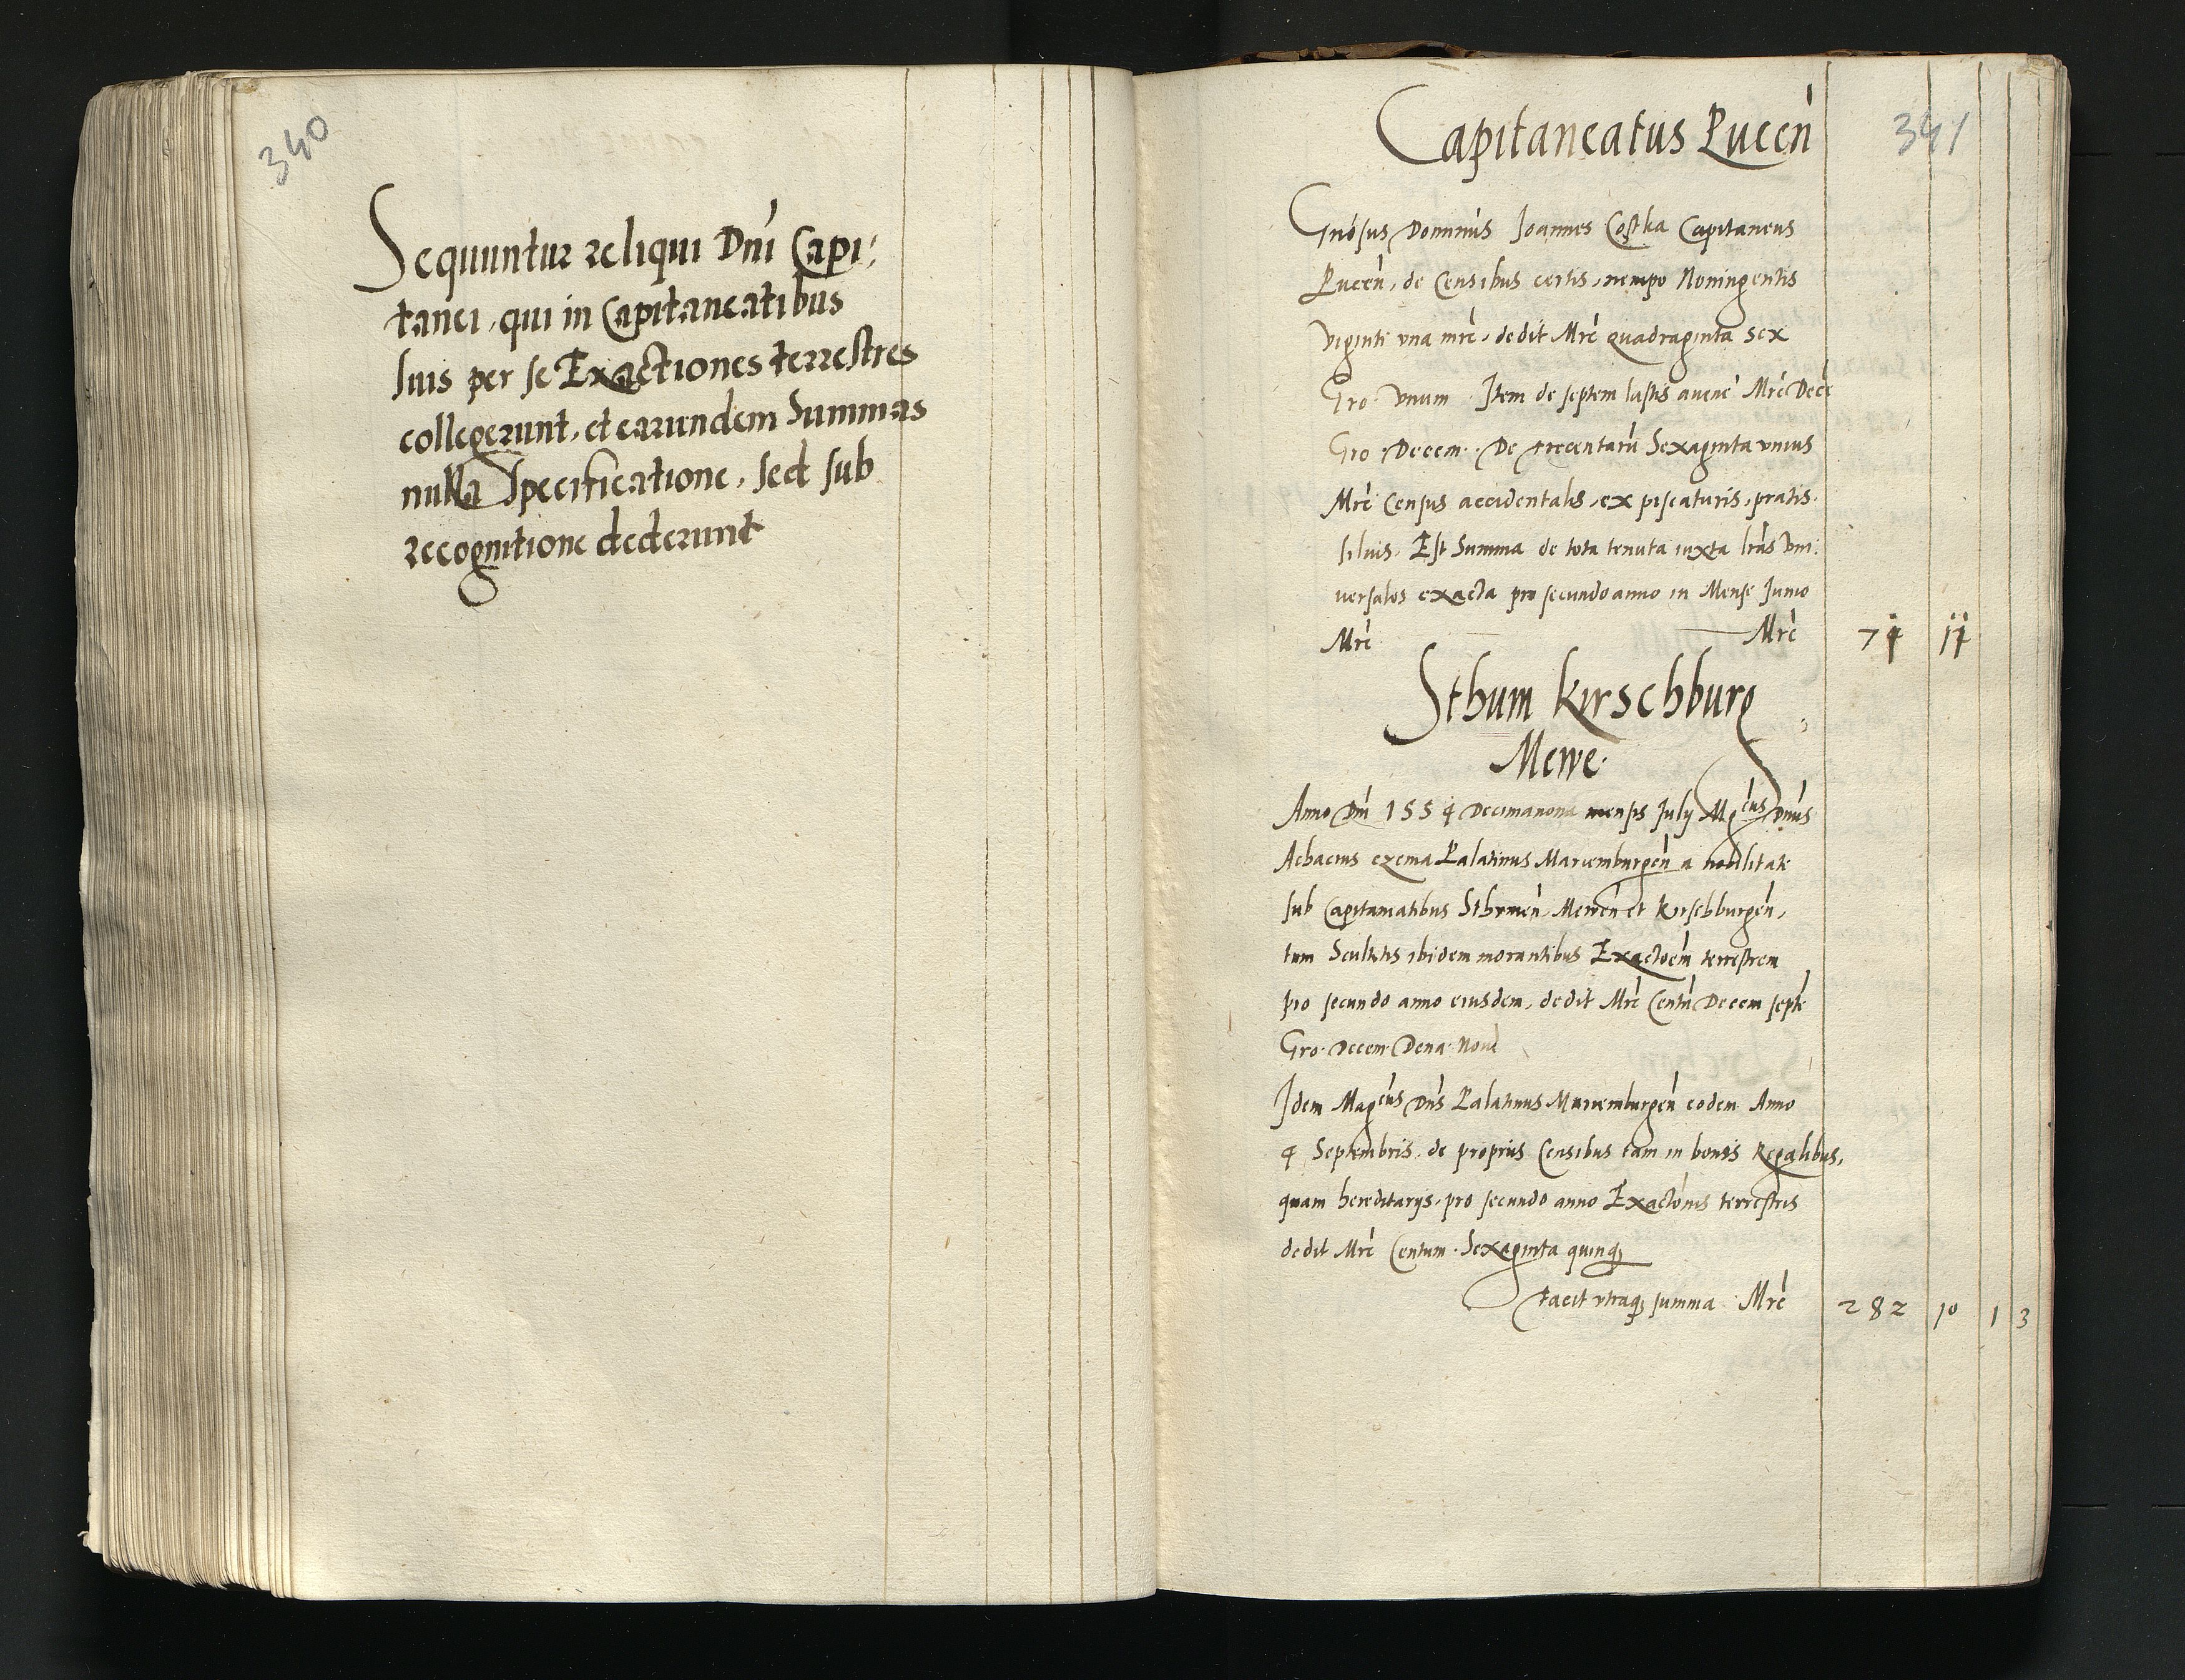 340
Sequuntur reliqui Dni Capi:
tanei, qui in Capitaneatibus
suis per se Exactiones terrestres
collegerunt, et earundem Summas
nulla Specificatione, sed sub
recognitione dederunt
341
Capitaneatus Pucen
Gnosus Dominus Joannes Costka Capitaneus
Pucen, de Censibus certis, nempe Noningentis
viginti una mrc, dedit Mrc quadraginta sex
Gro Vnum Item de septem lastis avene Mrc Dece
Gro Decem. De trecentaru Sexaginta unius
Mrc Census accidentalis, ex piscaturis, pratis.
siluis. Est Summa de tota tenuta iuxta lras Vni:
uersales exacta pro secundo anno in Mense Junio
Mrc Mrc 74 11
Sthum Kirschburg
Mewe.
Anno Dni 1554 Decimanona mensis July Mgcus Dnus
Achacius czema Palatinus Mariemburgen a nobilitate
sub Capitaneatibus Sthumen Mewen et Kirschburgen,
tum Scultetis ibidem morantibus Exactoem terrestrem
pro secundo anno eiusdem, dedit Mrc Centu Decem septe
Gro. Decem Dena. Nove
Idem Magcus Dns Palatinus Mariemburgen eodem Anno
4 Septembris. de proprius Censibus tam in bonis Regalibus,
quam hereditarys, pro secundo anno Exactonis terrestris
dedit Mrc Centum. Sexaginta quinq
Facit utraq summa Mrc 282 10 1 3